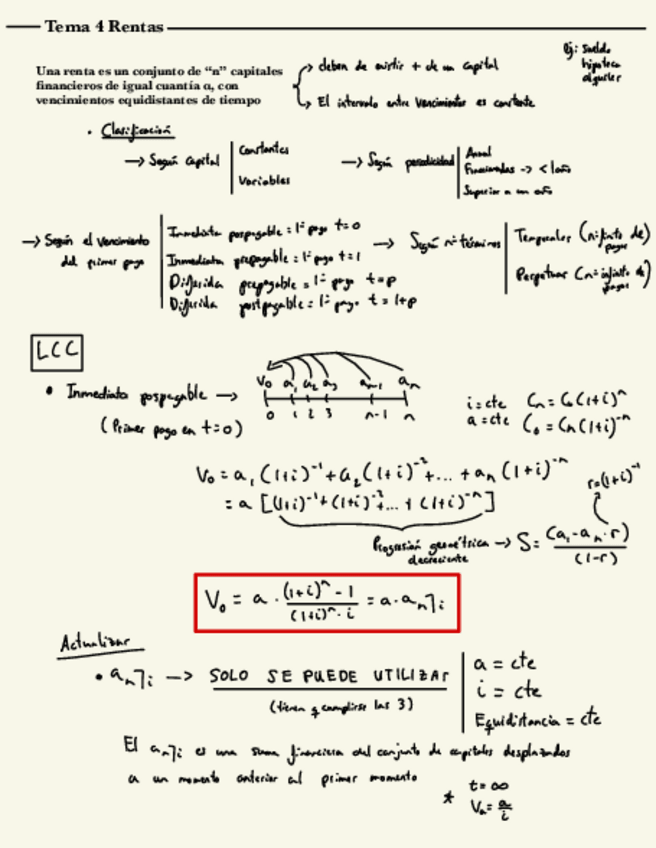 Tema 4 Rentas
Ej: Sueldo
hipoteca
alquiler
Una renta es un conjunto de “n” capitales
financieros de igual cuantía α, con
vencimientos equidistantes de tiempo
deben de existir + de un capital
El intervalo entre vencimientos es constante
• Clasificación
→ Según capital | Constantes
Variables
→ Según periodicidad | Anual
Fraccionadas -> < 1 año
Superior a un año
→ Según el vencimiento
del primer pago
Inmediata pospagable = 1º pago t=0
Inmediata prepagable = 1º pago t=1
Diferida prepagable = 1º pago t=p
Diferida postpagable = 1º pago t=1+p
→ Según nº términos | Temporales (n=finito de pagos)
Perpetuas (n=infinito de pagos)
LCC
• Inmediata pospagable →
(Primer pago en t=0)
V₀ a₁ a₂ a₃ aₙ₋₁ aₙ
0 1 2 3 n-1 n
i=cte Cₙ = C₀(1+i)ⁿ
a=cte C₀ = Cₙ(1+i)⁻ⁿ
V₀ = a₁(1+i)⁻¹ + a₂(1+i)⁻² + ... + aₙ(1+i)⁻ⁿ
r=(1+i)⁻¹
= a [(1+i)⁻¹ + (1+i)⁻² + ... + (1+i)⁻ⁿ]
Progresión geométrica decreciente → S = (a₁ - aₙ · r) / (1-r)
V₀ = a · ((1+i)ⁿ - 1) / ((1+i)ⁿ · i) = a · aₙ⌉ᵢ
Actualizar
• aₙ⌉ᵢ → SOLO SE PUEDE UTILIZAR
(tienen q cumplirse las 3)
a = cte
i = cte
Equidistancia = cte
El aₙ⌉ᵢ es una suma financiera del conjunto de capitales desplazados
a un momento anterior al primer momento
* t=∞
V₀ = a/i